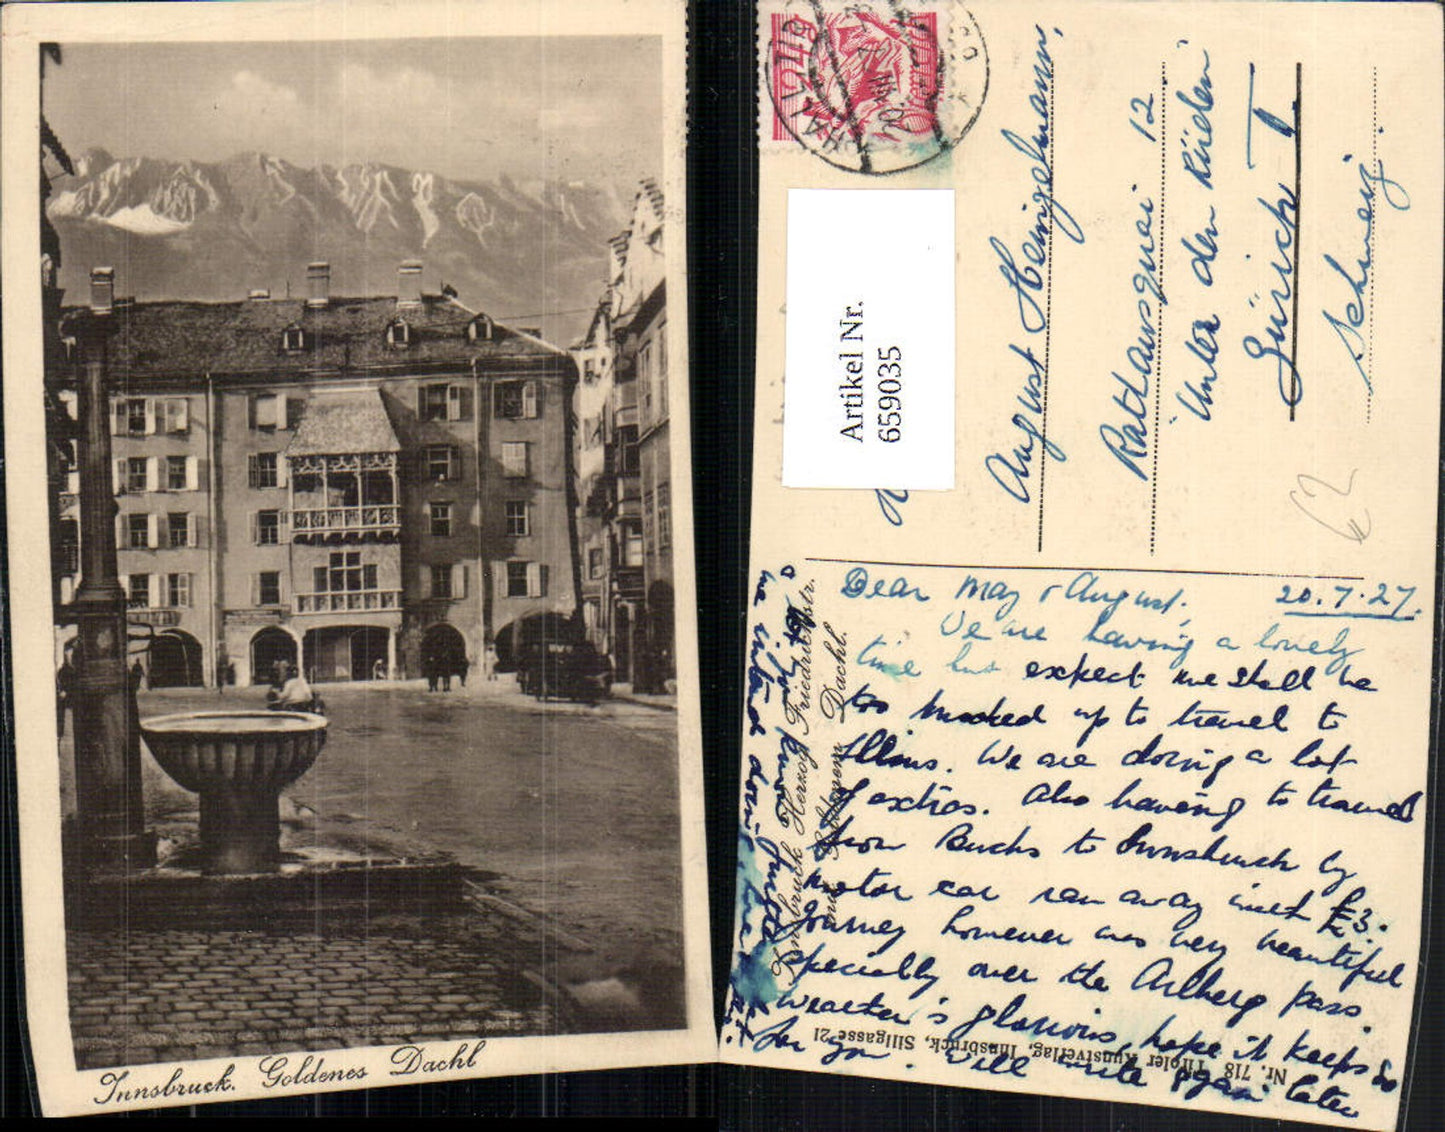 Innsbruck. Goldenes Dachl
Artikel Nr.
659035
HALL
August Heinzelmann,
Rathausquai 12
"Unter den Rüden"
Zürich I.
Schweiz.
Dear May & August, 20.7.27.
We are having a lovely
time but expect we shall be
too booked up to travel to
Illins. We are doing a lot
of extras. Also having to travel
from Buchs to Innsbruck by
motor car ran away with £3.
Journey however was very beautiful
specially over the Arlberg pass.
Weather is glorious, hope it keeps so
for you. Will write again later
Innsbruck Herzog Friedrichstr.
mit Goldenem Dachl.
Nr. 718 Tiroler Kunstverlag, Innsbruck, Sillgasse 21